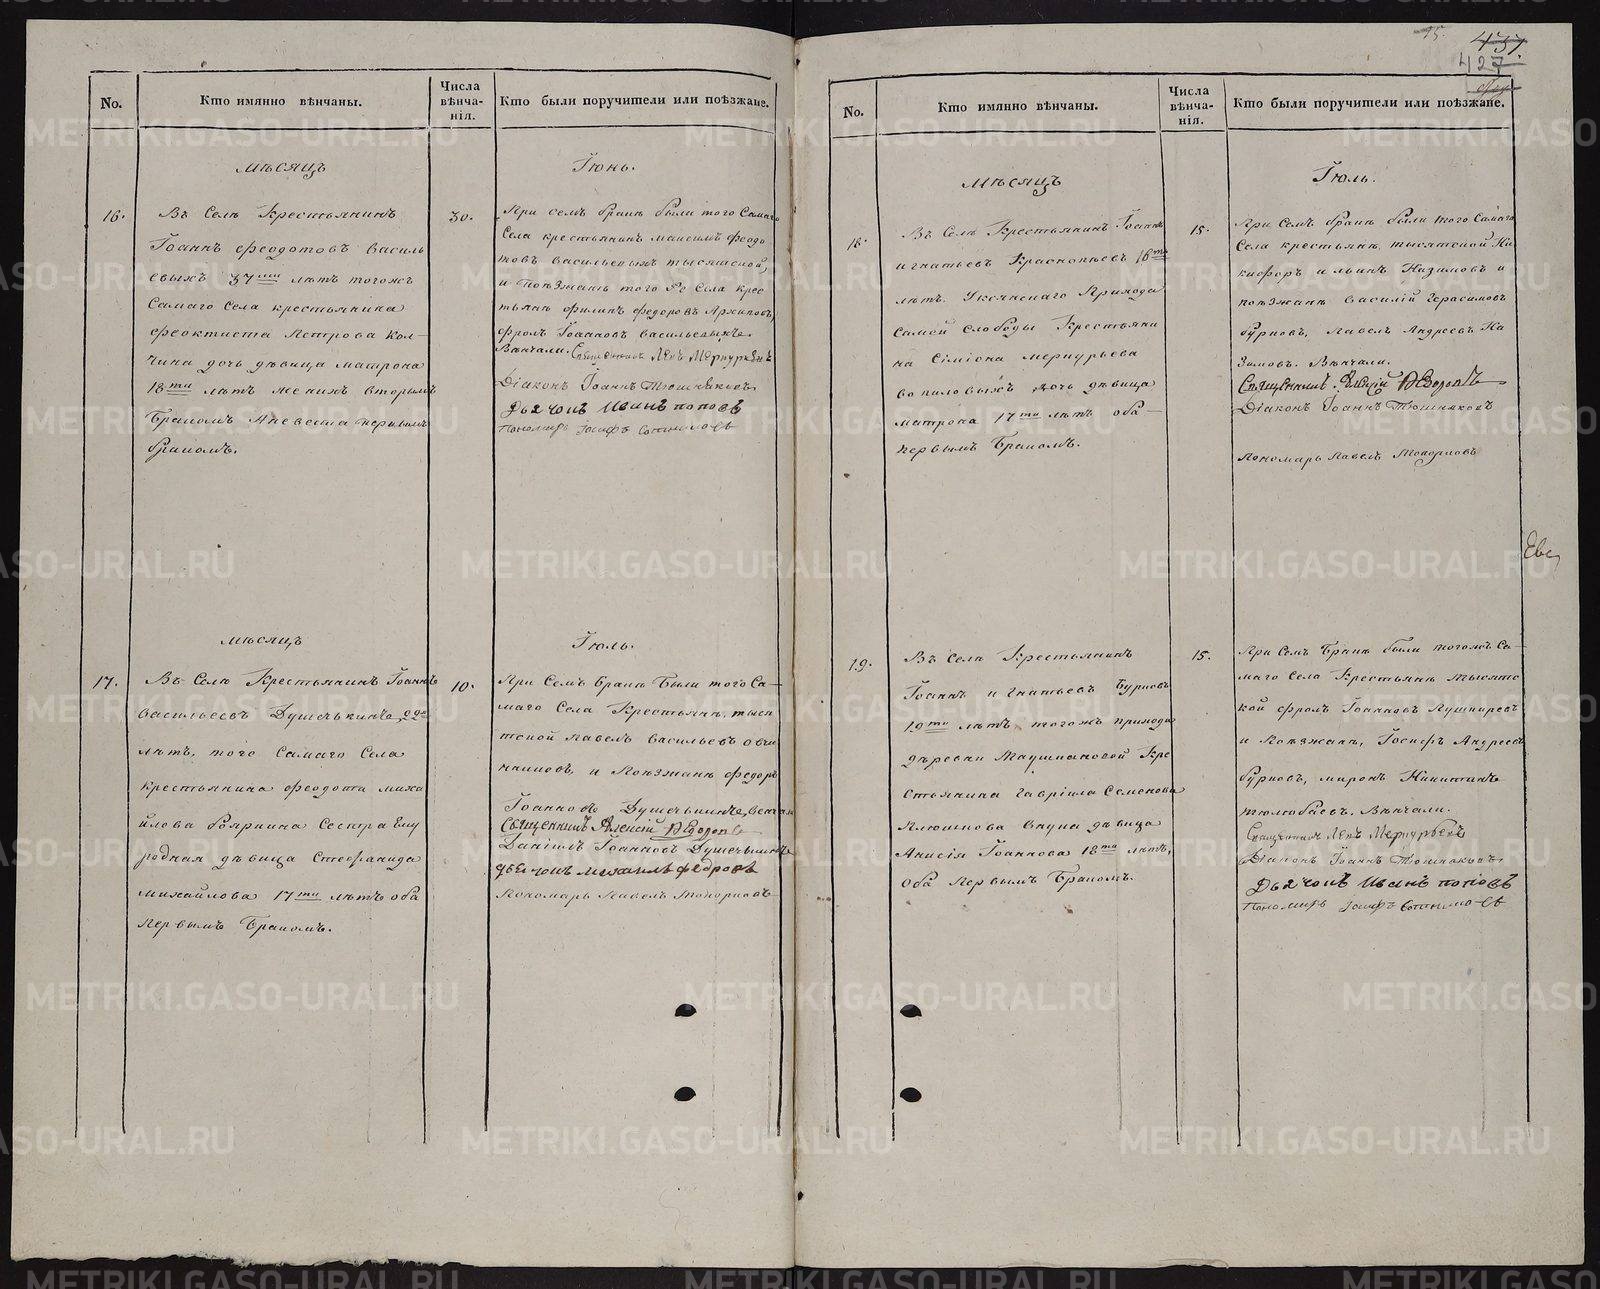 15.
437.
427
No.
Кто имянно вѣнчаны.
Числа
вѣнча-
нія.
Кто были поручители или поѣзжане.
Мѣсяцъ
Іюнь.
16.
Въ Селѣ Крестьянинъ
Іоаннъ Ѳеодотовъ Василь
евыхъ 37ми лѣтъ тогожъ
Самаго Села крестьянина
Ѳеоктиста Петрова Кол-
чина дочь дѣвица Матрона
18ти лѣтъ женихъ вторымъ
Бракомъ Аневеста первымъ
бракомъ.
30.
При семъ бракѣ были того Самаго
Села крестьянинъ Максимъ Ѳеодо
товъ Васильевыхъ тысяшской,
и Поѣзжанъ того же Села крес
тьянъ Филипъ Федоровъ Архиповъ,
Фролъ Іоанновъ Васильевыхъ
Вѣнчали. Священникъ Левъ Меркурьевъ
Діаконъ Іоаннъ Тюшняковъ
Дьячокъ Иванъ Поповъ
Пономарь Іосифъ
Мѣсяцъ
Іюль.
17.
Въ Селѣ Крестьянинъ Іоаннъ
Васильевъ Душечькинъ 22
лѣтъ, того Самаго Села
крестьянина Ѳеодота миха
йлова бояркина Сестра Ему
родная дѣвица Стефанида
михайлова 17ти лѣтъ оба
Первымъ Бракомъ.
10.
При Семъ Бракѣ Были того Са-
маго Села Крестьянъ, тыся
тской Павелъ Васильевъ Овчи
нниковъ, и Поѣзжанъ Федоръ
Іоанновъ Душечькинъ, Венчал
Священникъ Алексій
Даніилъ Іоанновъ Душечькинъ
дьячокъ михаилъ Федоровъ
Пономарь Павелъ Топорковъ
No.
Кто имянно вѣнчаны.
Числа
вѣнча-
нія.
Кто были поручители или поѣзжане.
Мѣсяцъ
Іюль.
18.
Въ Селѣ Крестьянинъ Іоаннъ
игнатьевъ Краснопѣевъ 18ти
лѣтъ. Уксянскаго Прихода
Самой Слободы Крестьяни
на Сіміона меркурьева
Вопиловыхъ дочь дѣвица
матрона 17ти лѣтъ оба-
первымъ Бракомъ.
15.
При Семъ бракѣ были того Самаго
Села крестьянъ, тысятской Ни
кифоръ ильинъ Казимовъ и
поѣзжанъ Василій Герасимовъ
бурковъ, Павелъ Андреевъ Ка
зимовъ. Вѣнчали.
Священникъ Алексій
Діаконъ Іоаннъ Тюшняковъ
Пономарь Павелъ Топорковъ
Евс
19.
Въ Селѣ Крестьянинъ
Іоаннъ игнатьевъ Бурковъ
19ти лѣтъ тогожъ прихода
деревни Таушкановой Кре
стьянина Гавріила Семенова
Клюшнова Внука дѣвица
Анисія Іоаннова 18ти лѣтъ,
Оба Первымъ Бракомъ.
15.
При Семъ Бракѣ были тогожъ Са-
маго Села Крестьянъ Тысятс
кой Фролъ Іоанновъ Кушниревъ
и Поѣзжанъ, Іосифъ Андреевъ
бурковъ, миронъ Никитинъ
тюлюбаевъ. Вѣнчали.
Священникъ Левъ Меркурьевъ
Діаконъ Іоаннъ Тюшняковъ
Дьячокъ Иванъ Поповъ
Пономарь Іосифъ
METRIKI.GASO-URAL.RU